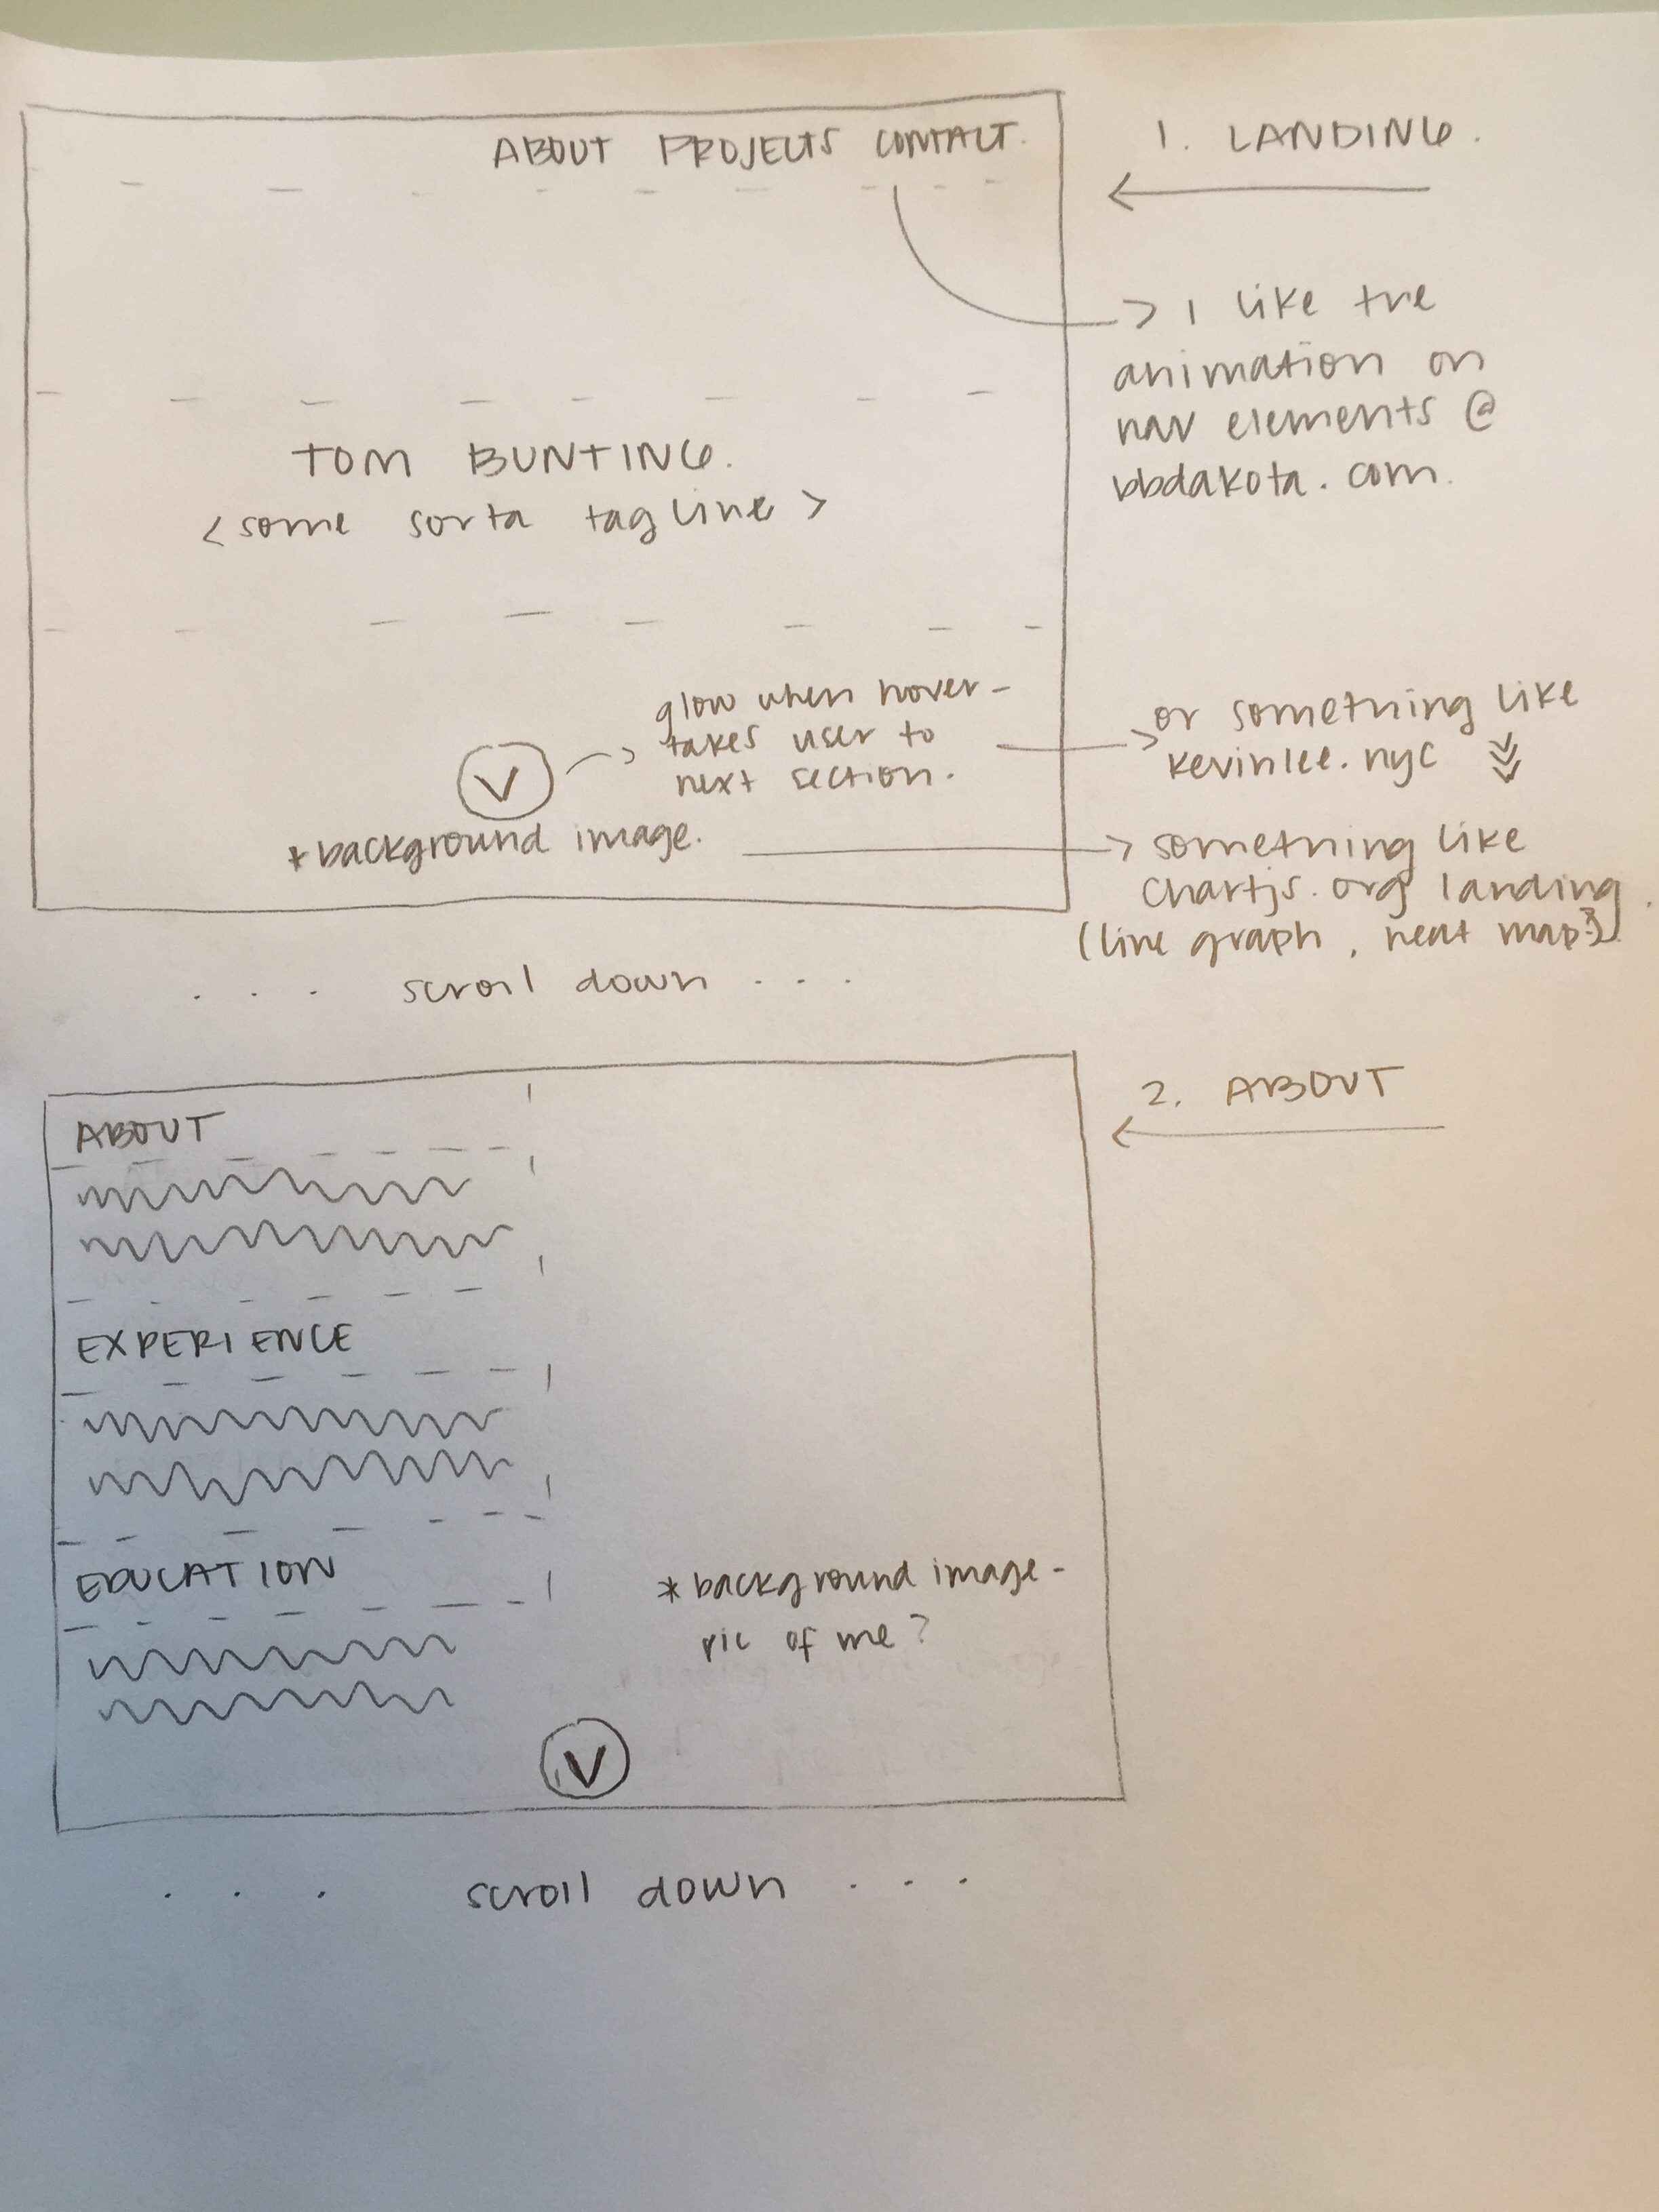 ABOUT PROJECTS CONTACT.
1. LANDING.
> I like the
animation on
nav elements @
bbdakota.com.
TOM BUNTING.
<some sorta tagline>
glow when hover-
takes user to
next section.
V
or something like
kevinlee.nyc
*background image.
something like
chartjs.org landing.
(line graph, heat map?)
... scroll down ...
2. ABOUT
ABOUT
EXPERIENCE
EDUCATION
*background image-
pic of me?
V
... scroll down ...